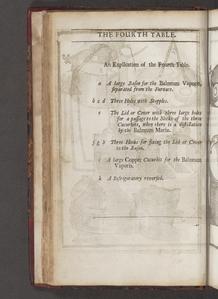 THE FOURTH TABLE.
An Explication of the Fourth Table.
a A large Bason for the Balneum Vaporis,
separated from the Furnace.
b c d Three Holes with Stopples.
e The Lid or Cover with three large holes
for a passage to the Necks of the three
Cucurbits, when there is a distillation
by the Balneum Mariæ.
f g h Three Hooks for fixing the Lid or Cover
to the Bason.
i A large Copper Cucurbit for the Balneum
Vaporis.
k A Refrigeratory reversed.